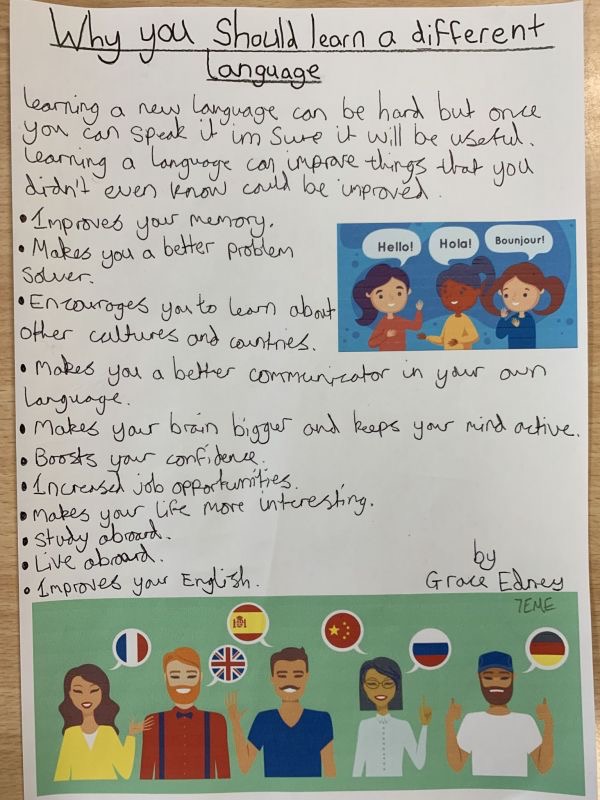 Why you Should learn a different
language
Learning a new language can be hard but once
you can speak it im Sure it will be useful.
Learning a language can improve things that you
didn't even know could be improved.
• Improves your memory.
• Makes you a better problem
Solver.
Hello! Hola! Bounjour!
• Encourages you to learn about
other cultures and countries.
• Makes you a better communicator in your own
language.
• Makes your brain bigger and keeps your mind active.
• Boosts your confidence.
• Increased job opportunities.
• Makes your life more interesting.
• Study abroard.
• Live abroard.
• Improves your English.
by
Grace Edney
7EME